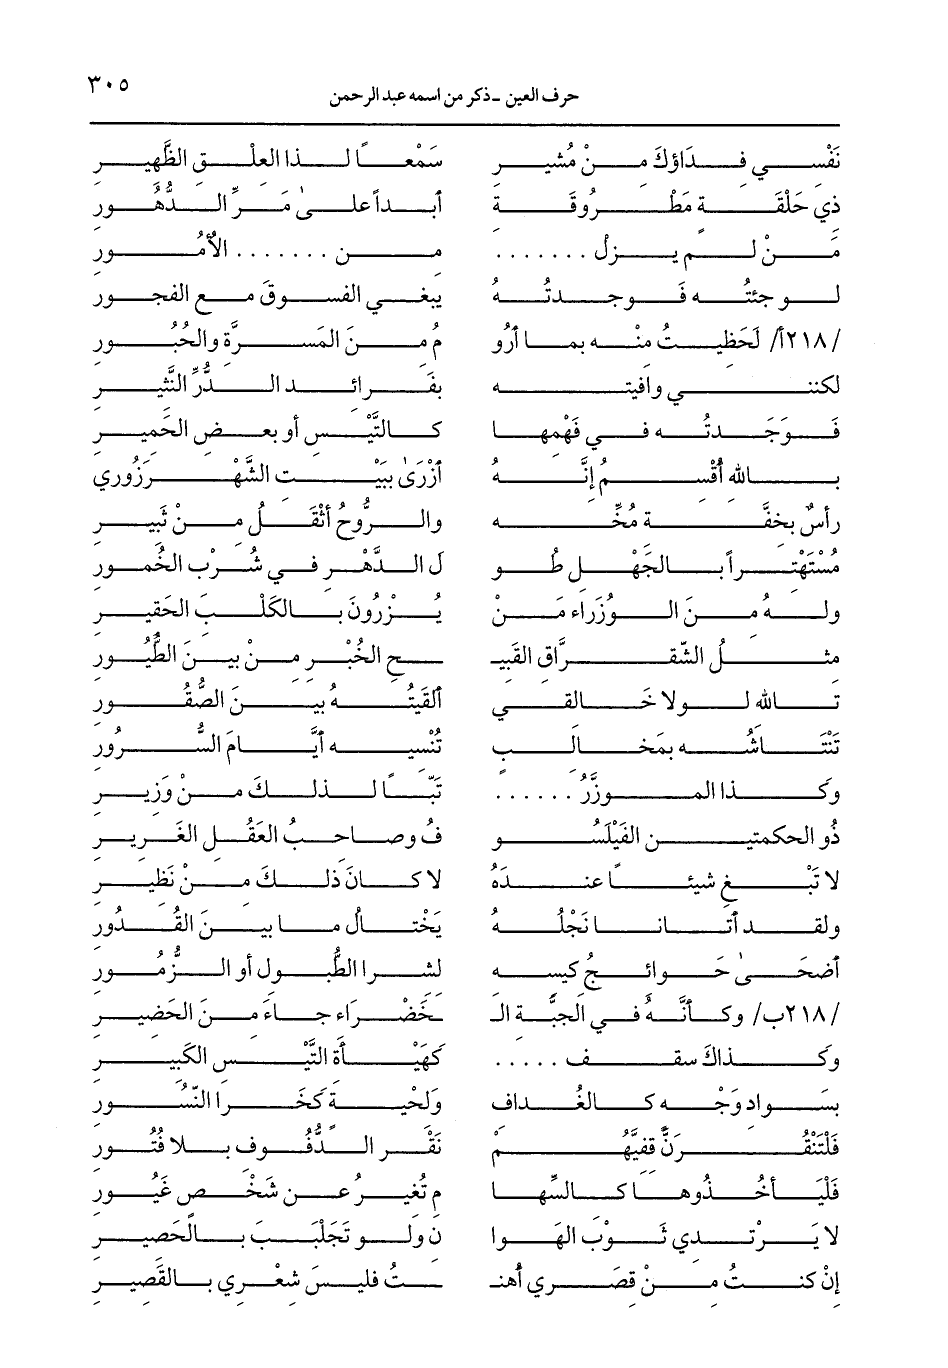 حرف العين - ذكر من اسمه عبد الرحمن ٣٠٥
نَفْسي فدَاؤكَ منْ مُشيرِ سَمْعاً لذا العلْقِ الظَّهيرِ
ذي حَلْقَةٍ مَطْرُوقَةٍ أبداً على مَرِّ الدُّهُورِ
مَنْ لم يزلْ ....... من ....... الأمُورِ
لو جئتُه فوجدتُهُ يبغي الفسوقَ مع الفجورِ
/٢١٨أ/ لَحَظيتُ منْه بما أرُو مُ منَ المَسرَّةِ والحُبُورِ
لكنني وافيته بفَرائد الدُّرِّ النَّثيرِ
فَوَجَدتُه في فَهْمِها كالتَّيْسِ أو بعضِ الحَميرِ
باللهِ أقْسمُ إنَّهُ أزْرَىٰ بَبيْتِ الشَّهْرَزُوري
رأسٌ بخفَّةِ مُخِّه والرُّوحُ أثْقَلُ منْ ثَبيرِ
مُسْتَهْتراً بالجَهْلِ طُو لَ الدَّهْرِ في شُرْبِ الخُمُورِ
ولهُ منَ الوُزَراءِ مَنْ يُزْرُونَ بالكَلْبِ الحَقيرِ
مثلُ الشّقرَّاقِ القَبيـ ـحِ الخُبْرِ منْ بينِ الطُّيُورِ
تاللهِ لولا خَالقي ألقَيْتُهُ بينَ الصُّقُورِ
تَنْتَاشُه بمَخالَبٍ تُنْسيه أيَّامَ السُّرُورِ
وكَذا الموزَّرُ ...... تَبّاً لذلكَ منْ وَزيرِ
ذُو الحكمتينِ الفَيْلَسُو فُ وصاحبُ العَقْلِ الغَريرِ
لا تَبْغِ شيئاً عندَهُ لا كانَ ذلكَ منْ نَظيرِ
ولقد أتَانا نَجْلُهُ يَخْتالُ ما بينَ القُدُورِ
أضحَىٰ حَوائجُ كيسه لشرا الطُّبولِ أو الزُّمُورِ
/٢١٨ب/ وكأنَّهُ في الجبَّةِ الـ ـخَضْرَاءِ جاءَ منَ الحَضيرِ
وكذاكَ سقف ..... كَهَيْأةِ التَّيْسِ الكَبيرِ
بسَوادِ وَجْهٍ كالغُدافِ وَلحْيةٍ كَخَرا النُّسُورِ
فَلْتَنْقُرَنَّ قفيَّهُمْ نَقْرَ الدُّفُوفِ بلا فُتُورِ
فَلْيَأخُذُوها كالسِّها م تُغيرُ عن شَخْصٍ غَيُورِ
لا يَرْتدي ثَوْبَ الهَوا ن ولو تَجَلْبَبَ بالحَصيرِ
إنْ كنتُ منْ قصَري أهنـ ـتُ فليسَ شعْري بالقَصيرِ